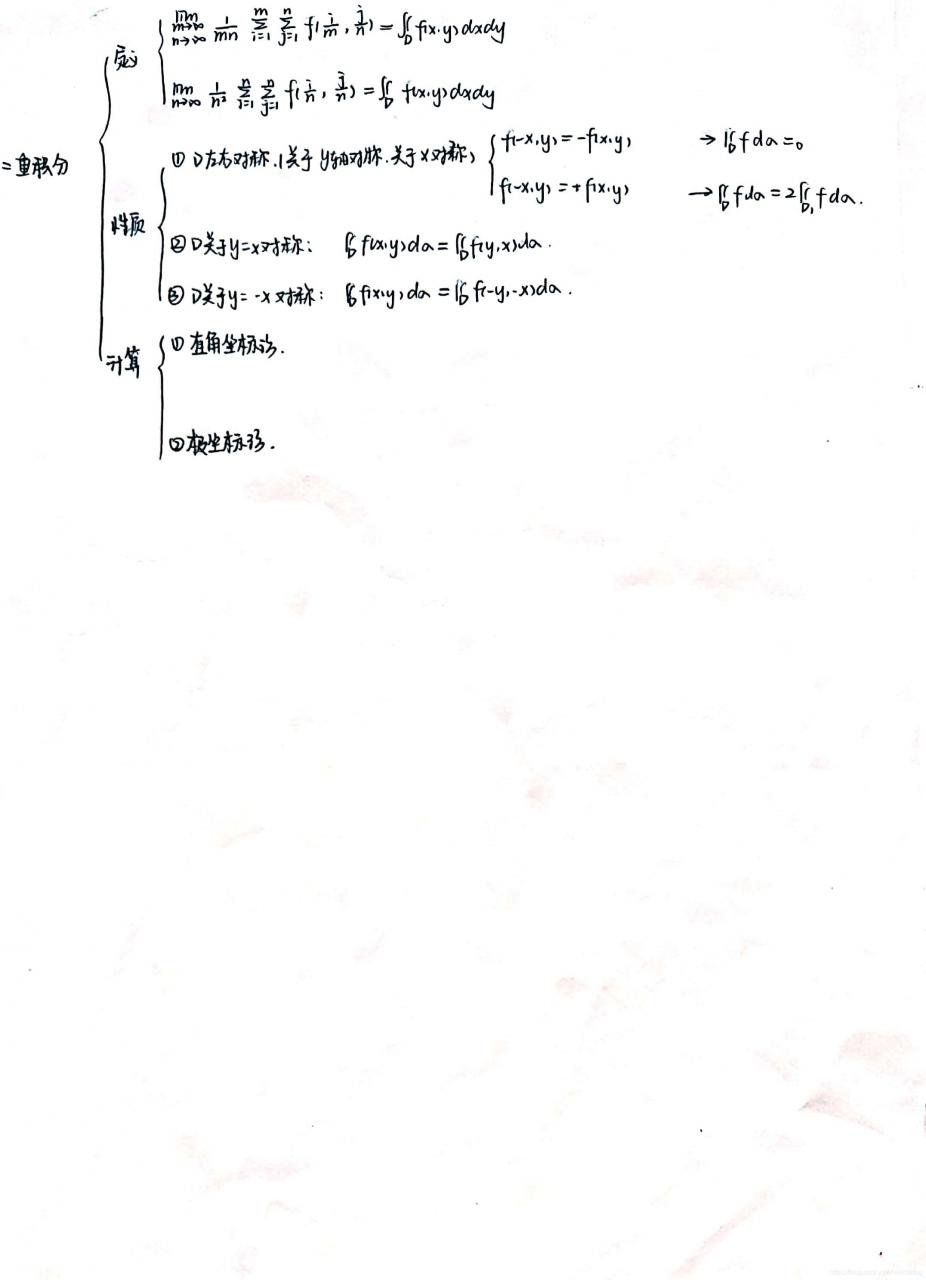 二重积分
定义
lim m→∞ n→∞ 1/mn Σ_{i=1}^{m} Σ_{j=1}^{n} f(i/m, j/n) = ∬_D f(x,y)dxdy
lim n→∞ 1/n² Σ_{i=1}^{n} Σ_{j=1}^{n} f(i/n, j/n) = ∬_D f(x,y)dxdy
性质
① D左右对称.(关于y轴对称.关于x对称)
f(-x,y) = -f(x,y) → ∬_D f dσ = 0
f(-x,y) = +f(x,y) → ∬_D f dσ = 2∬_{D₁} f dσ.
② D关于y=x对称: ∬_D f(x,y)dσ = ∬_D f(y,x)dσ.
③ D关于y=-x对称: ∬_D f(x,y)dσ = ∬_D f(-y,-x)dσ.
计算
① 直角坐标法.
② 极坐标法.